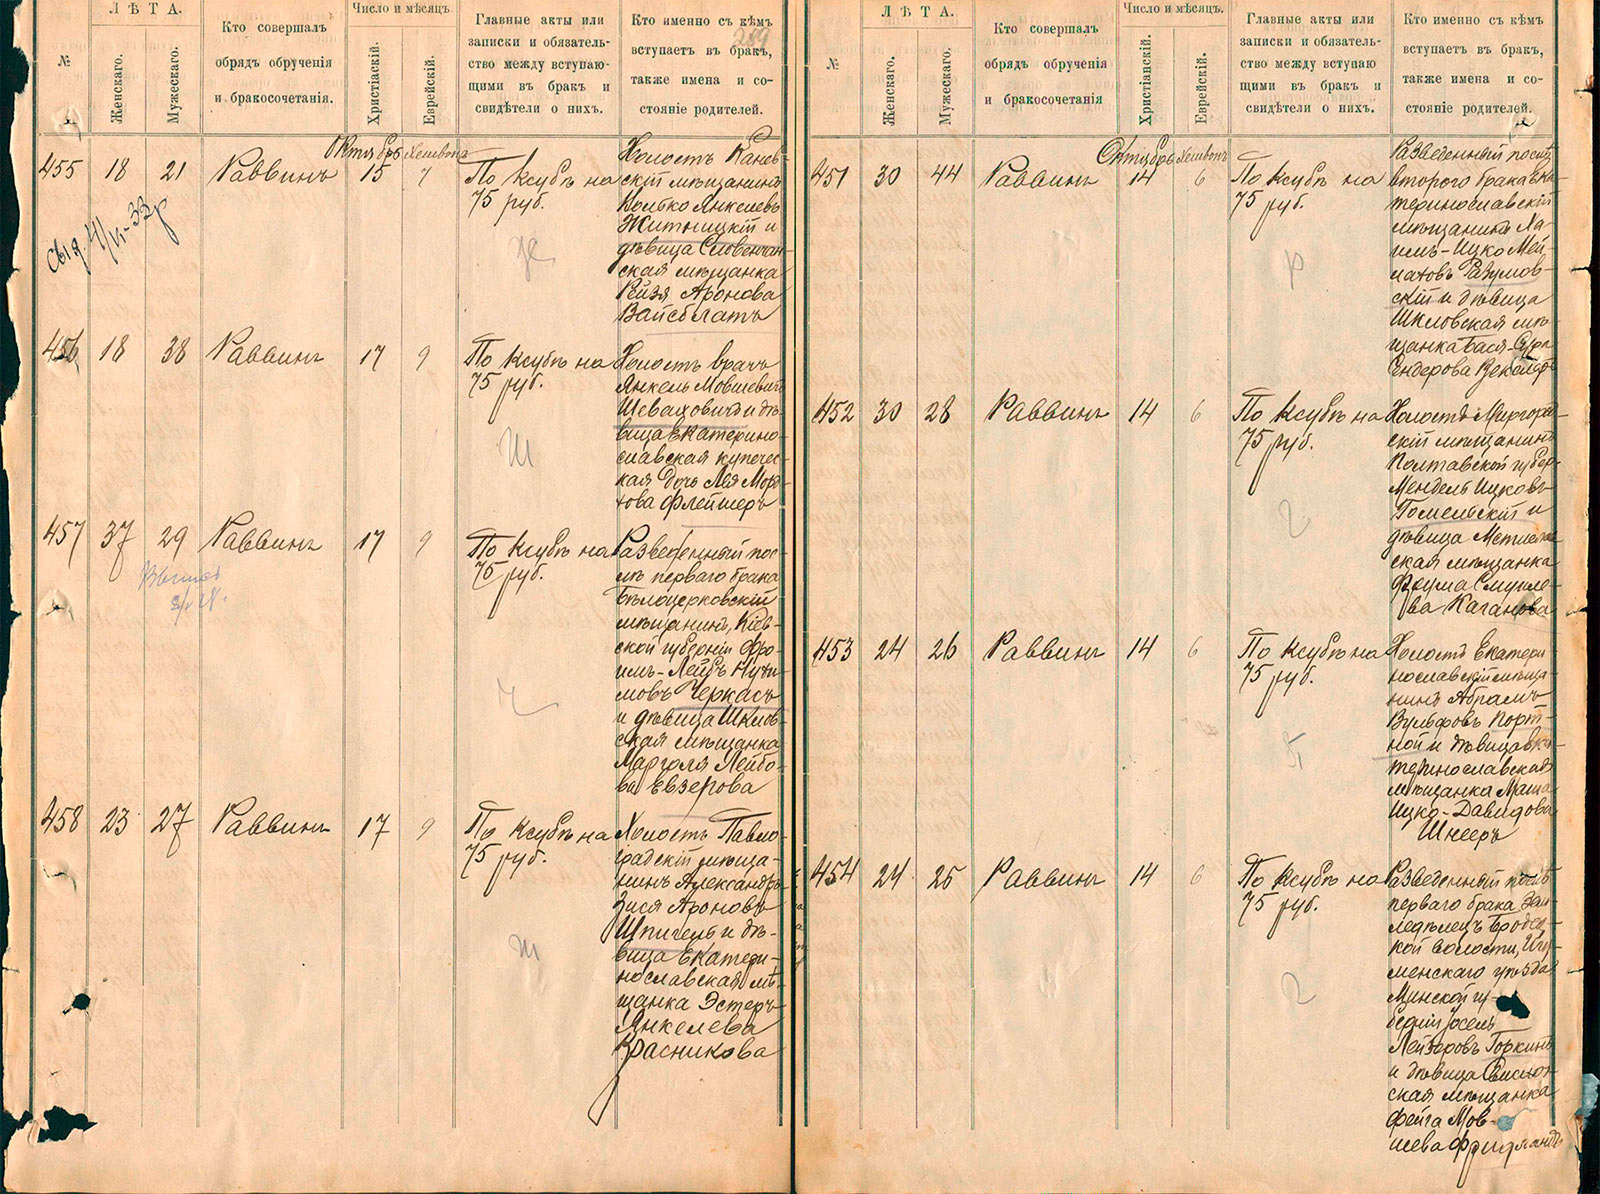 ЛѢТА.
Число и мѣсяцъ
№
Женскаго.
Мужескаго.
Кто совершалъ
обрядъ обрученія
и бракосочетанія.
Христіаскій.
Еврейскій.
Главные акты или
записки и обязатель-
ство между вступаю-
щими въ бракъ и
свидѣтели о нихъ.
Кто именно съ кѣмъ
вступаетъ въ бракъ,
также имена и со-
стояніе родителей.
289
455 18 21 Раввинъ
Октябрь Хешвонъ
15 7
По Ксубѣ на
75 руб.
Холостъ Канев-
скій мѣщанинъ
Волько Янкелевъ
Житницкій и
дѣвица Словечан-
ская мѣщанка
Рейзя Аронова
Вайсблатъ
456 18 38 Раввинъ 17 9
По Ксубѣ на
75 руб.
Ш
Холостъ врачъ
Янкель Мовшевичъ
Шеваховичъ и дѣ-
вица Екатерино-
славская купечес-
кая дочь Лея Морд-
хова Флейшеръ
457 37 29 Раввинъ 17 9
По Ксубѣ на
75 руб.
Ч
Разведенный пос-
лѣ перваго брака
Бѣлоцерковскій
мѣщанинъ, Кіев-
ской губерніи Фро-
имъ-Лейбъ Нухи-
мовъ Черкасъ
и дѣвица Шклов-
ская мѣщанка
Марголя Лейбо-
ва Евзерова
458 23 27 Раввинъ 17 9
По Ксубѣ на
75 руб.
Ш
Холостъ Павло-
градскій мѣща-
нинъ Александръ
Зися Ароновъ
Шпигель и дѣ-
вица Екатери-
нославская мѣ-
щанка Эстеръ
Янкелева
Красникова
ЛѢТА.
Число и мѣсяцъ.
№
Женскаго.
Мужескаго.
Кто совершалъ
обрядъ обрученія
и бракосочетанія
Христіанскій.
Еврейскій.
Главные акты или
записки и обязатель-
ство между вступаю
щими въ бракъ и
свидѣтели о нихъ.
Кто именно съ кѣмъ
вступаетъ въ бракъ,
также имена и со-
стояніе родителей.
451 30 44 Раввинъ
Октябрь Хешвонъ
14 6
По Ксубѣ на
75 руб.
Р
Разведенный послѣ
второго брака Ека-
теринославскій
мѣщанинъ Ха-
имъ-Ицко Мей-
лаховъ Разумов-
скій и дѣвица
Шкловская мѣ-
щанка Бася-
Ендерова
452 30 28 Раввинъ 14 6
По Ксубѣ на
75 руб.
Холостъ Миргород-
скій мѣщанинъ
Полтавской губер.
Мендель Ицковъ
и
дѣвица
ская мѣщанка
Фрума Смуило-
ва Каганова
453 24 26 Раввинъ 14 6
По Ксубѣ на
75 руб.
Холостъ Екатери-
нославскій мѣща-
нинъ Абрамъ
Вульфовъ Порт-
ной и дѣвица Ека-
теринославская
мѣщанка Маша
Ицко-Давидова
Шнееръ
454 24 25 Раввинъ 14 6
По Ксубѣ на
75 руб.
Разведенный послѣ
перваго брака Зем-
ледѣлецъ Бродец-
кой волости, Игу-
менскаго уѣзда
Минской гу-
берніи Іосель
Лейзеровъ Горкинъ
и дѣвица
ская мѣщанка
Фейга Мов-
шева Фридландъ